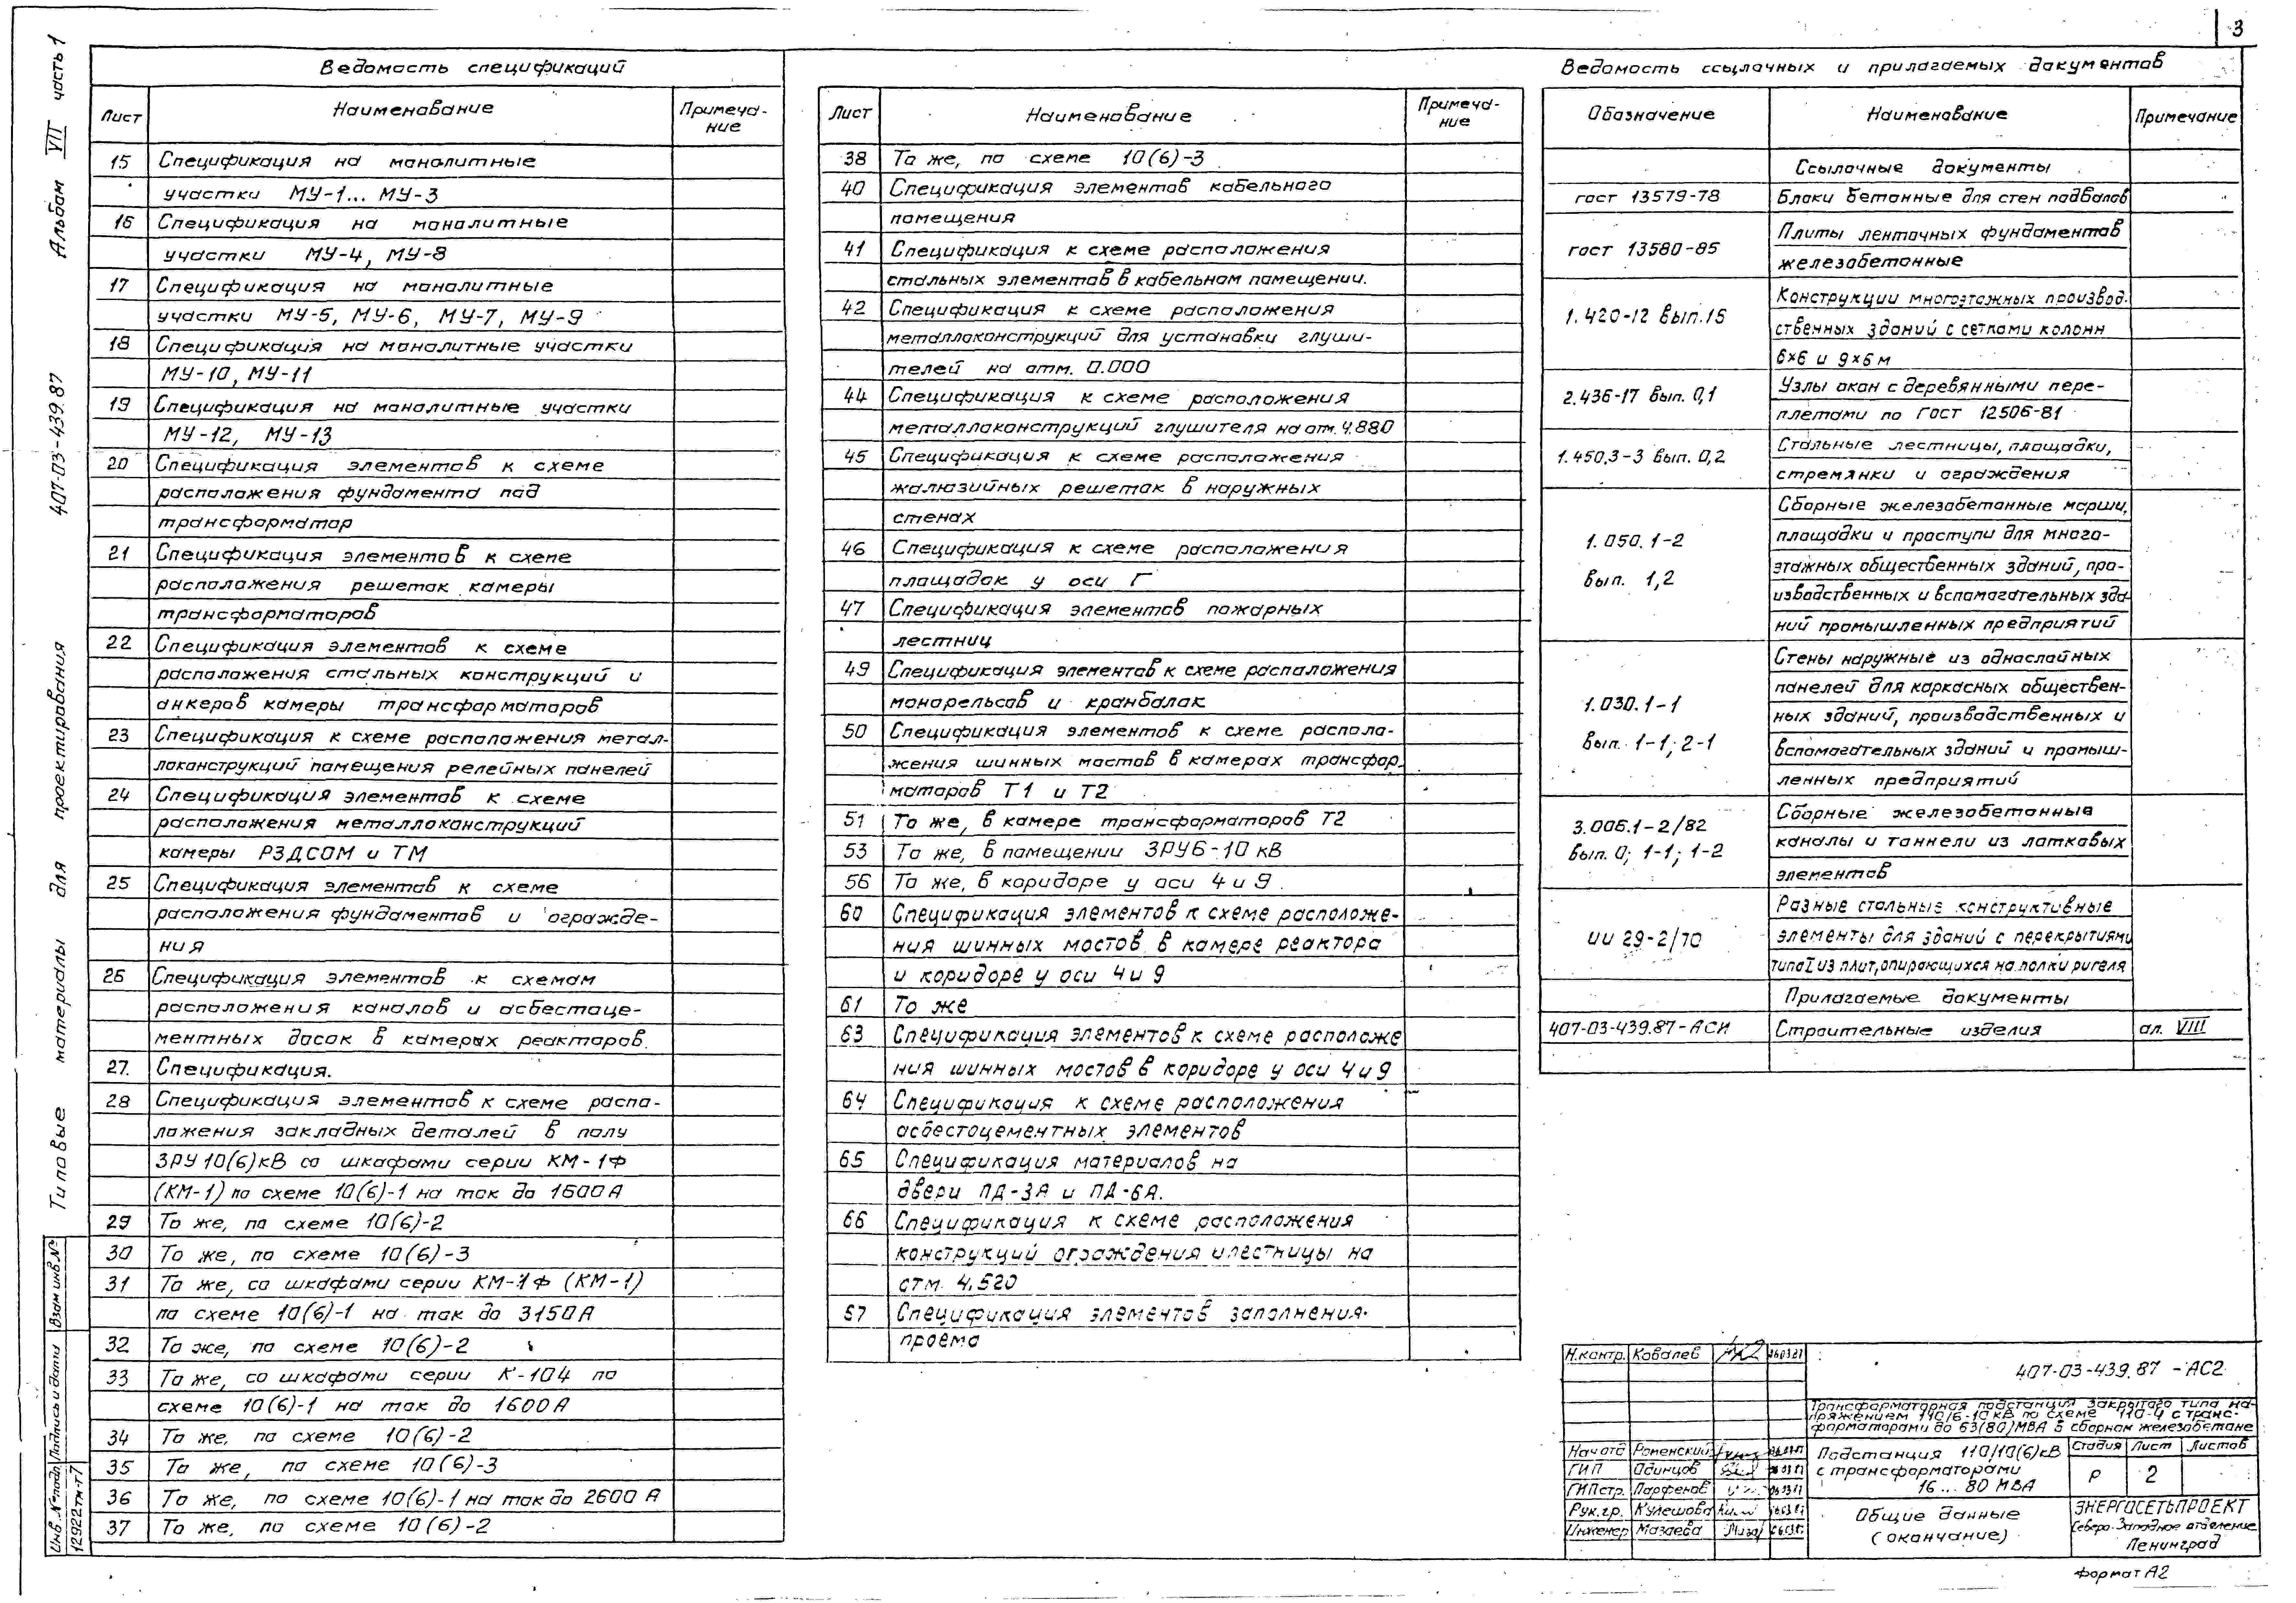 3
Ведомость спецификаций
Лист Наименование Примеча-
ние
15 Спецификация на монолитные
участки МУ-1... МУ-3
16 Спецификация на монолитные
участки МУ-4, МУ-8
17 Спецификация на монолитные
участки МУ-5, МУ-6, МУ-7, МУ-9
18 Спецификация на монолитные участки
МУ-10, МУ-11
19 Спецификация на монолитные участки
МУ-12, МУ-13
20 Спецификация элементов к схеме
расположения фундамента под
трансформатор
21 Спецификация элементов к схеме
расположения решеток камеры
трансформаторов
22 Спецификация элементов к схеме
расположения стальных конструкций и
анкеров камеры трансформаторов
23 Спецификация к схеме расположения метал-
локонструкций помещения релейных панелей
24 Спецификация элементов к схеме
расположения металлоконструкций
камеры РЗДСОМ и ТМ
25 Спецификация элементов к схеме
расположения фундаментов и огражде-
ния
26 Спецификация элементов к схемам
расположения каналов и асбестоце-
ментных досок в камерах реакторов.
27. Спецификация.
28 Спецификация элементов к схеме распо-
ложения закладных деталей в полу
ЗРУ 10(6)кВ со шкафами серии КМ-1Ф
(КМ-1) по схеме 10(6)-1 на ток до 1600А
29 То же, по схеме 10(6)-2
30 То же, по схеме 10(6)-3
31 То же, со шкафами серии КМ-1Ф (КМ-1)
по схеме 10(6)-1 на ток до 3150А
32 То же, по схеме 10(6)-2
33 То же, со шкафами серии К-104 по
схеме 10(6)-1 на ток до 1600А
34 То же, по схеме 10(6)-2
35 То же, по схеме 10(6)-3
36 То же, по схеме 10(6)-1 на ток до 2600А
37 То же, по схеме 10(6)-2
Лист Наименование Примеча-
ние
38 То же, по схеме 10(6)-3
40 Спецификация элементов кабельного
помещения
41 Спецификация к схеме расположения
стальных элементов в кабельном помещении.
42 Спецификация к схеме расположения
металлоконструкций для установки глуши-
телей на отм. 0.000
44 Спецификация к схеме расположения
металлоконструкций глушителя на отм. 4.880
45 Спецификация к схеме расположения
жалюзийных решеток в наружных
стенах
46 Спецификация к схеме расположения
площадок у оси Г
47 Спецификация элементов пожарных
лестниц
49 Спецификация элементов к схеме расположения
монорельсов и кранбалок
50 Спецификация элементов к схеме располо-
жения шинных мостов в камерах трансфор-
маторов Т1 и Т2
51 То же, в камере трансформаторов Т2
53 То же, в помещении ЗРУ6-10кВ
56 То же, в коридоре у оси 4 и 9
60 Спецификация элементов к схеме расположе-
ния шинных мостов в камере реактора
и коридоре у оси 4 и 9
61 То же
63 Спецификация элементов к схеме расположе
ния шинных мостов в коридоре у оси 4 и 9
64 Спецификация к схеме расположения
асбестоцементных элементов
65 Спецификация материалов на
двери ПД-3А и ПД-6А.
66 Спецификация к схеме расположения
конструкций ограждения и лестницы на
отм. 4.520
67 Спецификация элементов заполнения
проема
Ведомость ссылочных и прилагаемых документов
Обозначение Наименование Примечание
Ссылочные документы
гост 13579-78 Блоки бетонные для стен подвалов
гост 13580-85 Плиты ленточных фундаментов
железобетонные
1.420-12 вып.15 Конструкции многоэтажных производ-
ственных зданий с сетками колонн
6×6 и 9×6м
2.436-17 вып. 0,1 Узлы окон с деревянными пере-
плетами по гост 12506-81
1.450.3-3 вып. 0,2 Стальные лестницы, площадки,
стремянки и ограждения
1.050.1-2
вып. 1,2
Сборные железобетонные марши,
площадки и проступи для много-
этажных общественных зданий, про-
изводственных и вспомогательных зда-
ний промышленных предприятий
1.030.1-1
вып. 1-1; 2-1
Стены наружные из однослойных
панелей для каркасных обществен-
ных зданий, производственных и
вспомогательных зданий и промыш-
ленных предприятий
3.006.1-2/82
вып. 0; 1-1; 1-2
Сборные железобетонные
каналы и тоннели из лотковых
элементов
ИИ 29-2/70
Разные стальные конструктивные
элементы для зданий с перекрытиями
типа I из плит, опирающихся на полки ригеля
Прилагаемые документы
407-03-439.87-АСИ Строительные изделия ал. VIII
Н.контр. Ковалев
Нач.отд Роменский
ГИП Одинцов
ГИПстр. Парфенов
Рук.гр. Кулешова
Инженер Мазаева
407-03-439.87 -АС2
Трансформаторная подстанция закрытого типа на-
пряжением 110/6-10 кВ по схеме 110-4 с транс-
форматорами до 63(80)МВА в сборном железобетоне
Подстанция 110/10(6)кВ
с трансформаторами
16 ... 80 МВА
Стадия Лист Листов
Р 2
Общие данные
(окончание)
ЭНЕРГОСЕТЬПРОЕКТ
Северо-Западное отделение
Ленинград
Формат А2
Типовые материалы для проектирования 407-03-439.87 Альбом VII часть 1
Взам инв. №
Подпись и дата
Инв. № подл
12922тм-т7